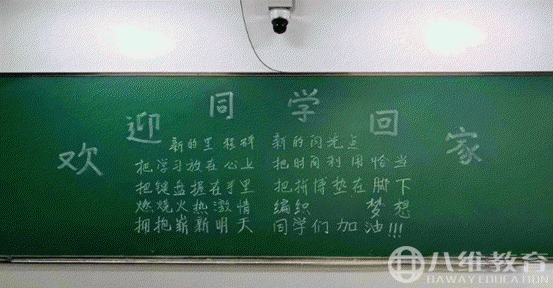 欢迎同学回家
新的里程碑 新的闪光点
把学习放在心上 把时间利用恰当
把键盘握在手里 把拼搏垫在脚下
燃烧火热激情 编织 梦想
拥抱崭新明天 同学们加油!!!
八维教育
BAWAY EDUCATION